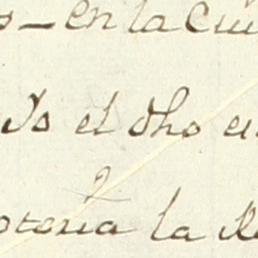 s - en la Ciu
Yo el dho e
oteria la Re